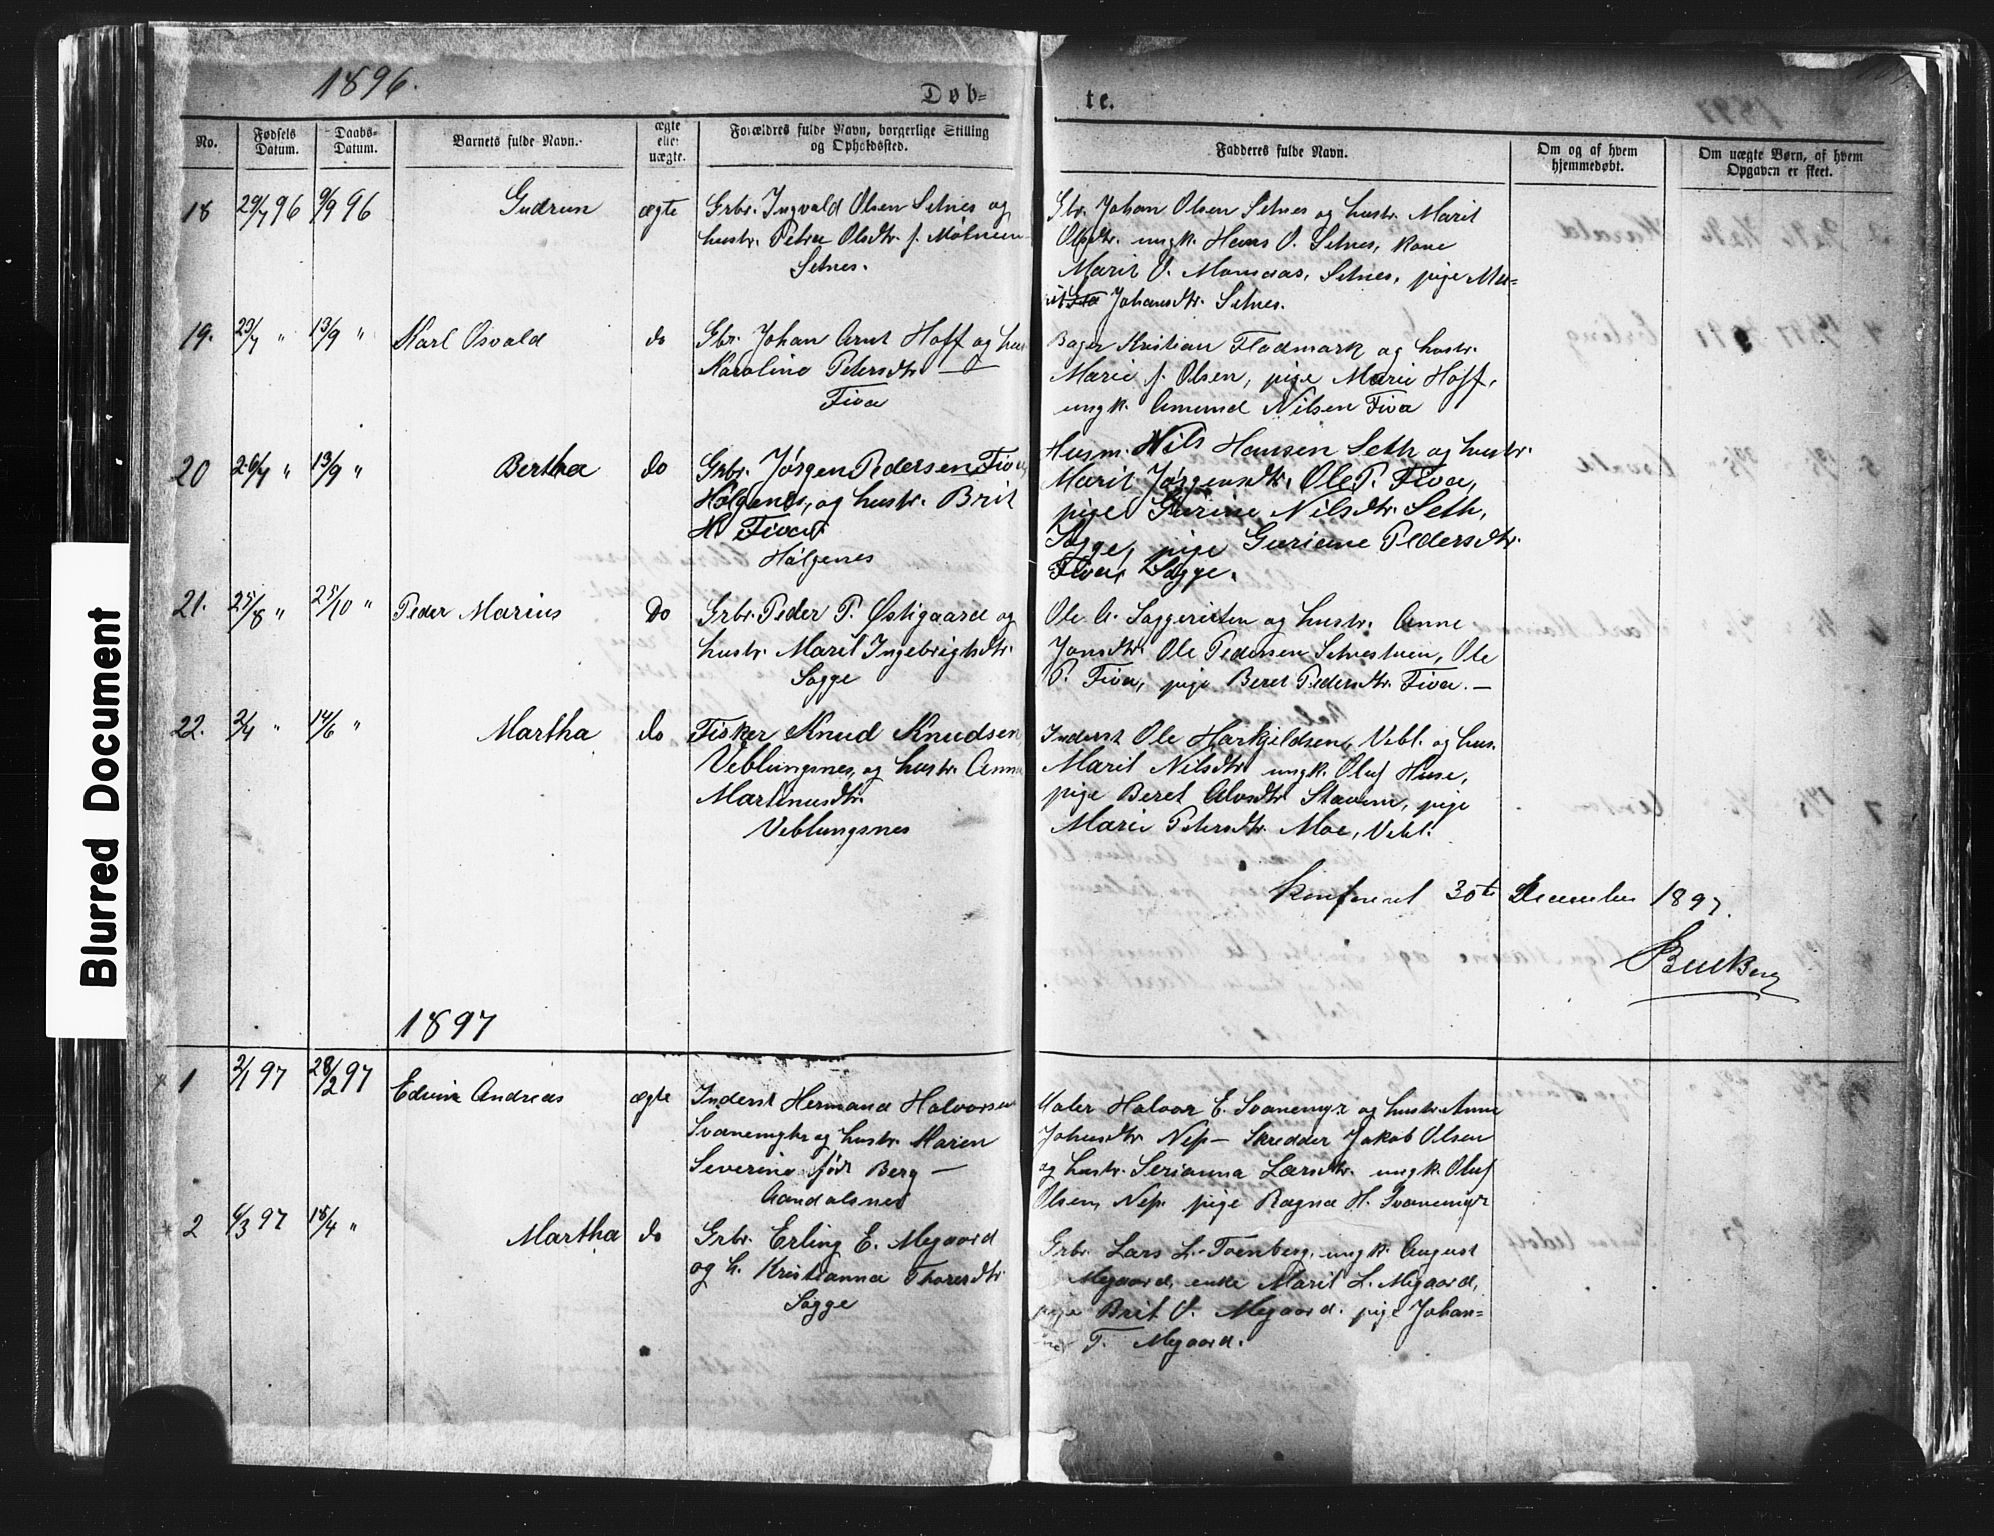 1896.
Døb-
te.
No.
Fødsels
Datum.
Daabs-
Datum.
Barnets fulde Navn.
ægte
eller
uægte.
Forældres fulde Navn, borgerlige Stilling
og Opholdssted.
Fadderes fulde Navn.
Om og af hvem
hjemmedøbt.
Om uægte Børn, af hvem
Opgaven er skeet.
18 29/7 96 6/9 96 Gudrun ægte
Grbr. Ingvald Olsen Setnes og
hustr. Petra Olsdtr. f. Molneen
Setnes.
Gbr. Johan Olsen Setnes og hustr. Marit
Olsdtr. ungk. Hans O. Setnes, kone
Marit O. Monsaas, Setnes, pige Ma-
rit Johansdtr. Setnes.
19. 23/7 " 13/9 " Karl Osvald do
Gbr. Johan Arnt Hoff og hus.
Karoline Petersdtr. —
Fiva
Bager Kristian Flodmark og hustr.
Marie f. Olsen, pige Marie Hoff,
ungk. Amund Nilsen Fiva
20 26/7 " 13/9 " Bertha do
Grbr. Jørgen Pedersen Fiva,
Holgenes, og hustr. Brit
H. Fiva
Holgenes
Husm. Nils Hansen Seth og hustr.
Marit Jørgensdtr. Ole P. Fiva,
pige Gurine Nilsdtr. Seth,
Sogge, pige Guriane Pedersdtr.
Fiva, Sogge.
21. 25/8 " 25/10 " Peder Marius Do
Grbr. Peder P. Østigaard og
hustr. Marit Ingebrigtsdtr.
Sogge
Ole A. Soggeristen og hustr. Anne
Jonsdtr. Ole Pedersen Setnestuen, Ole
P. Fiva, pige Beret Pedersdtr. Fiva. —
22. 2/4 " 14/6 " Martha do
Fisker Knud Knudsen
Veblungsnes, og hustr. Anna
Martinusdtr.
Veblungsnes
Inderst Ole Harkjeldsen, Vebl. og hus.
Marit Nilsdtr. ungk. Oluf Huse,
pige Beret Alvsdtr. Stavem, pige
Marie Petersdtr. Moe, Vebl.
Konfereret 30te December 1897.
1897
1 2/1 97 28/2 97 Edvin Andreas ægte
Inderst Hermand Halvorsen
Svanemyhr og hustr. Maren
Severine født Berg —
Aandalsnes
Maler Halvor E. Svanemyr og hustr. Anne
Johnsdtr. Nes — Skredder Jakob Olsen
og hustr. Serianna Larsdtr. ungk. Oluf
Olsen, Nes. pige Ragna H. Svanemyr
2 6/3 97 18/4 " Martha do
Grbr. Erling E. Megaard
og h. Kristianna Thoresdtr.
Sogge
Grbr. Lars L. Tornberg, ungk. August
Megaard, enke Marit L. Megaard,
pige Brit O. Megaard. pige Johan-
T. Megaard.
Blurred Document